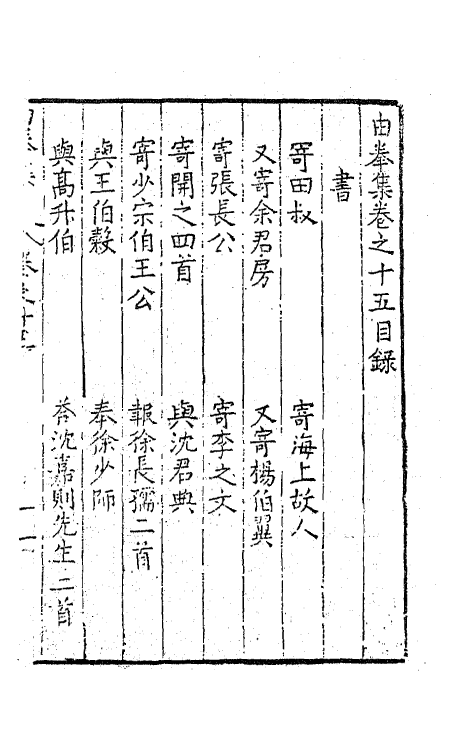 由拳集卷之十五目錄
書
寄田叔 寄海上故人
又寄余君房 又寄楊伯翼
寄張長公 寄李之文
寄開之四首 與沈君典
寄少宗伯王公 報徐長孺二首
與王伯穀 奉徐少師
與高升伯 答沈嘉則先生二首